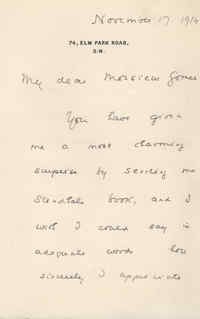 November 17 1914
74, ELM PARK ROAD,
S.W.
My dear Monsieur
You have given
me a most charming
surprise by sending me
Stendhals book, and I
wish I could say in
adequate words how
sincerely I appreciate